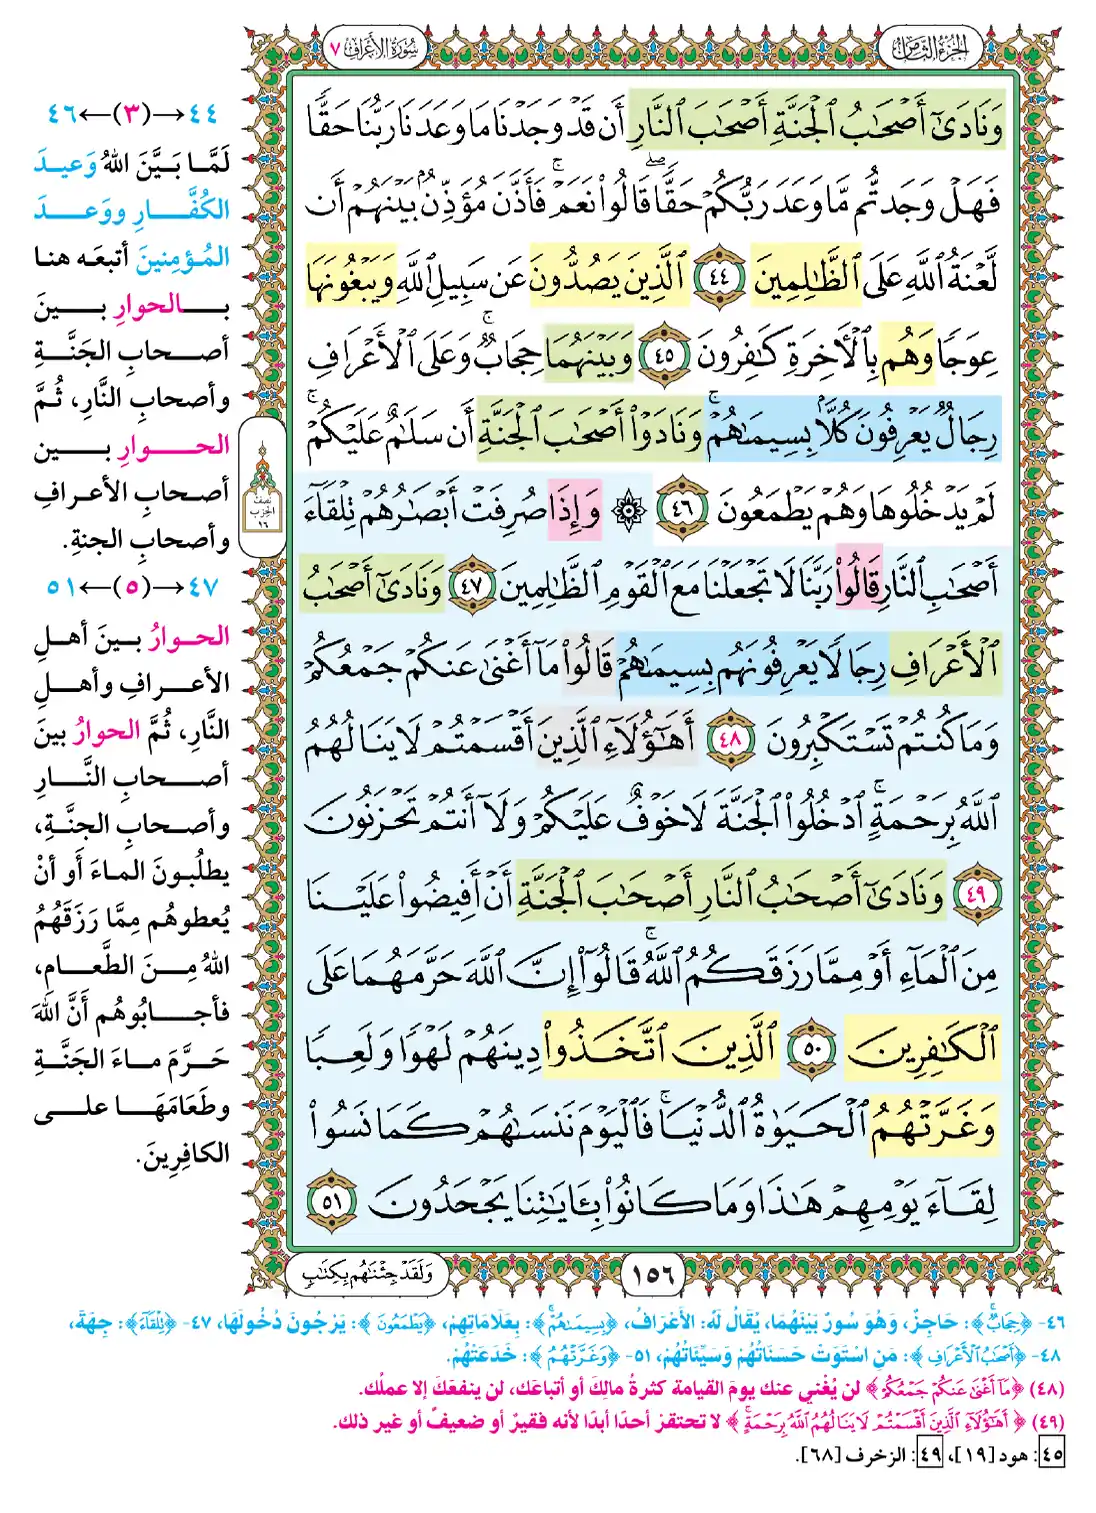 الجزء الثامن
سورة الأعراف ٧
وَنَادَىٰٓ أَصۡحَٰبُ ٱلۡجَنَّةِ أَصۡحَٰبَ ٱلنَّارِ أَن قَدۡ وَجَدۡنَا مَا وَعَدَنَا رَبُّنَا حَقّٗا
فَهَلۡ وَجَدتُّم مَّا وَعَدَ رَبُّكُمۡ حَقّٗاۖ قَالُواْ نَعَمۡۚ فَأَذَّنَ مُؤَذِّنُۢ بَيۡنَهُمۡ أَن
لَّعۡنَةُ ٱللَّهِ عَلَى ٱلظَّٰلِمِينَ ٤٤ ٱلَّذِينَ يَصُدُّونَ عَن سَبِيلِ ٱللَّهِ وَيَبۡغُونَهَا
عِوَجٗا وَهُم بِٱلۡأٓخِرَةِ كَٰفِرُونَ ٤٥ وَبَيۡنَهُمَا حِجَابٞۚ وَعَلَى ٱلۡأَعۡرَافِ
رِجَالٞ يَعۡرِفُونَ كُلَّۢا بِسِيمَىٰهُمۡۚ وَنَادَوۡاْ أَصۡحَٰبَ ٱلۡجَنَّةِ أَن سَلَٰمٌ عَلَيۡكُمۡۚ
لَمۡ يَدۡخُلُوهَا وَهُمۡ يَطۡمَعُونَ ٤٦ ۞ وَإِذَا صُرِفَتۡ أَبۡصَٰرُهُمۡ تِلۡقَآءَ
أَصۡحَٰبِ ٱلنَّارِ قَالُواْ رَبَّنَا لَا تَجۡعَلۡنَا مَعَ ٱلۡقَوۡمِ ٱلظَّٰلِمِينَ ٤٧ وَنَادَىٰٓ أَصۡحَٰبُ
ٱلۡأَعۡرَافِ رِجَالٗا يَعۡرِفُونَهُم بِسِيمَىٰهُمۡ قَالُواْ مَآ أَغۡنَىٰ عَنكُمۡ جَمۡعُكُمۡ
وَمَا كُنتُمۡ تَسۡتَكۡبِرُونَ ٤٨ أَهَٰٓؤُلَآءِ ٱلَّذِينَ أَقۡسَمۡتُمۡ لَا يَنَالُهُمُ
ٱللَّهُ بِرَحۡمَةٍۚ ٱدۡخُلُواْ ٱلۡجَنَّةَ لَا خَوۡفٌ عَلَيۡكُمۡ وَلَآ أَنتُمۡ تَحۡزَنُونَ
٤٩ وَنَادَىٰٓ أَصۡحَٰبُ ٱلنَّارِ أَصۡحَٰبَ ٱلۡجَنَّةِ أَنۡ أَفِيضُواْ عَلَيۡنَا
مِنَ ٱلۡمَآءِ أَوۡ مِمَّا رَزَقَكُمُ ٱللَّهُۚ قَالُوٓاْ إِنَّ ٱللَّهَ حَرَّمَهُمَا عَلَى
ٱلۡكَٰفِرِينَ ٥٠ ٱلَّذِينَ ٱتَّخَذُواْ دِينَهُمۡ لَهۡوٗا وَلَعِبٗا
وَغَرَّتۡهُمُ ٱلۡحَيَوٰةُ ٱلدُّنۡيَاۚ فَٱلۡيَوۡمَ نَنسَىٰهُمۡ كَمَا نَسُواْ
لِقَآءَ يَوۡمِهِمۡ هَٰذَا وَمَا كَانُواْ بِـَٔايَٰتِنَا يَجۡحَدُونَ ٥١
نصف
الحزب
١٦
١٥٦
وَلَقَدۡ جِئۡنَٰهُم بِكِتَٰبٖ
٤٤→(٣)←٤٦
لَمَّا بَيَّنَ اللهُ وَعيدَ
الكُفَّارِ ووَعدَ
المُؤمِنينَ أتبعَه هنا
بالحوارِ بينَ
أصحابِ الجَنَّةِ
وأصحابِ النَّارِ، ثُمَّ
الحوارِ بين
أصحابِ الأعرافِ
وأصحابِ الجنةِ.
٤٧→(٥)←٥١
الحوارُ بينَ أهلِ
الأعرافِ وأهلِ
النَّارِ، ثُمَّ الحوارُ بينَ
أصحابِ النَّارِ
وأصحابِ الجنَّةِ،
يطلُبونَ الماءَ أو أنْ
يُعطوهُم مِمَّا رَزَقَهُمُ
اللهُ مِنَ الطَّعامِ،
فأجابُوهُم أنَّ اللهَ
حَرَّمَ ماءَ الجَنَّةِ
وطَعَامَهَا على
الكافِرِينَ.
٤٦- ﴿حِجَابٞۚ﴾: حَاجِزٌ، وَهُوَ سُورٌ بَيْنَهُمَا، يُقَالُ لَهُ: الأَعْرَافُ، ﴿بِسِيمَىٰهُمۡۚ﴾: بِعَلَامَاتِهِمْ، ﴿يَطۡمَعُونَ﴾: يَرْجُونَ دُخُولَهَا، ٤٧- ﴿تِلۡقَآءَ﴾: جِهَةَ،
٤٨- ﴿أَصۡحَٰبُ ٱلۡأَعۡرَافِ﴾: مَنِ اسْتَوَتْ حَسَنَاتُهُمْ وَسَيِّئَاتُهُمْ، ٥١- ﴿وَغَرَّتۡهُمُ﴾: خَدَعَتْهُمْ.
(٤٨) ﴿مَآ أَغۡنَىٰ عَنكُمۡ جَمۡعُكُمۡ﴾ لن يُغْني عنك يومَ القيامة كثرةُ مالِكَ أو أتباعَك، لن ينفعَكَ إلا عملُك.
(٤٩) ﴿أَهَٰٓؤُلَآءِ ٱلَّذِينَ أَقۡسَمۡتُمۡ لَا يَنَالُهُمُ ٱللَّهُ بِرَحۡمَةٍۚ﴾ لا تحتقر أحدًا أبدًا لأنه فقيرٌ أو ضعيفٌ أو غير ذلك.
٤٥: هود [١٩]، ٤٩: الزخرف [٦٨].